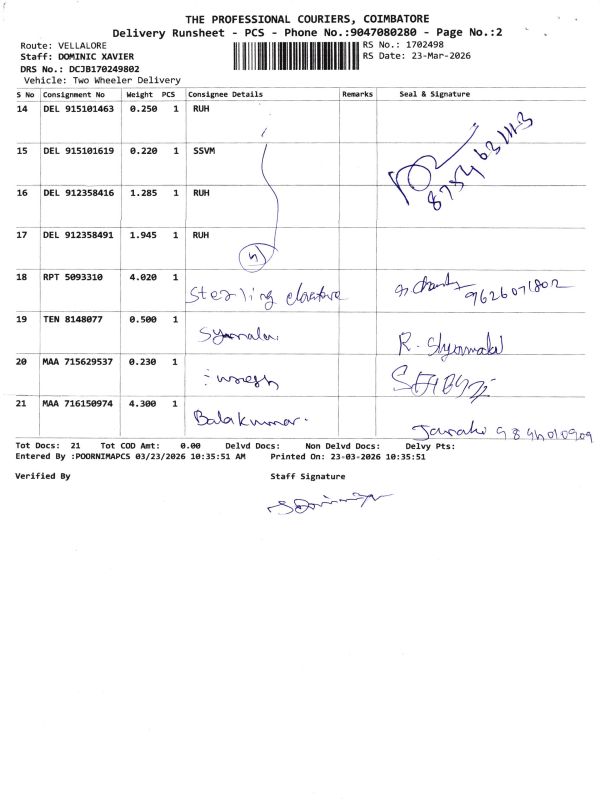 THE PROFESSIONAL COURIERS, COIMBATORE
Delivery Runsheet - PCS - Phone No.:9047080280 - Page No.:2
Route: VELLALORE RS No.: 1702498
Staff: DOMINIC XAVIER RS Date: 23-Mar-2026
DRS No.: DCJB170249802
Vehicle: Two Wheeler Delivery
S No Consignment No Weight PCS Consignee Details Remarks Seal & Signature
14 DEL 915101463 0.250 1 RUH
15 DEL 915101619 0.220 1 SSVM
8754631113
16 DEL 912358416 1.285 1 RUH
17 DEL 912358491 1.945 1 RUH
18 RPT 5093310 4.020 1 Sterling 9626071802
19 TEN 8148077 0.500 1 Syamala R. Shyamala
20 MAA 715629537 0.230 1
21 MAA 716150974 4.300 1 Balakumar. Janaki
Tot Docs: 21 Tot COD Amt: 0.00 Delvd Docs: Non Delvd Docs: Delvy Pts:
Entered By :POORNIMAPCS 03/23/2026 10:35:51 AM Printed On: 23-03-2026 10:35:51
Verified By Staff Signature